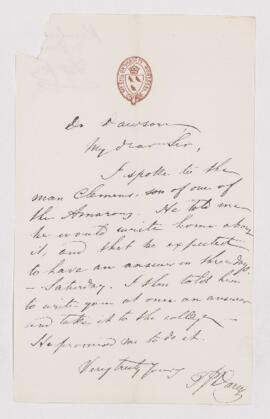 Dr Dawson,
My dear Sir,
I spoke to the
man Clemens, son of one of
the He told me
he would write home about
it, and that he expected
to have an answer in three days,
- Saturday. I then told him
to write you at once an answer
and take it to the college -
He promised me to do it.
Very truly yours